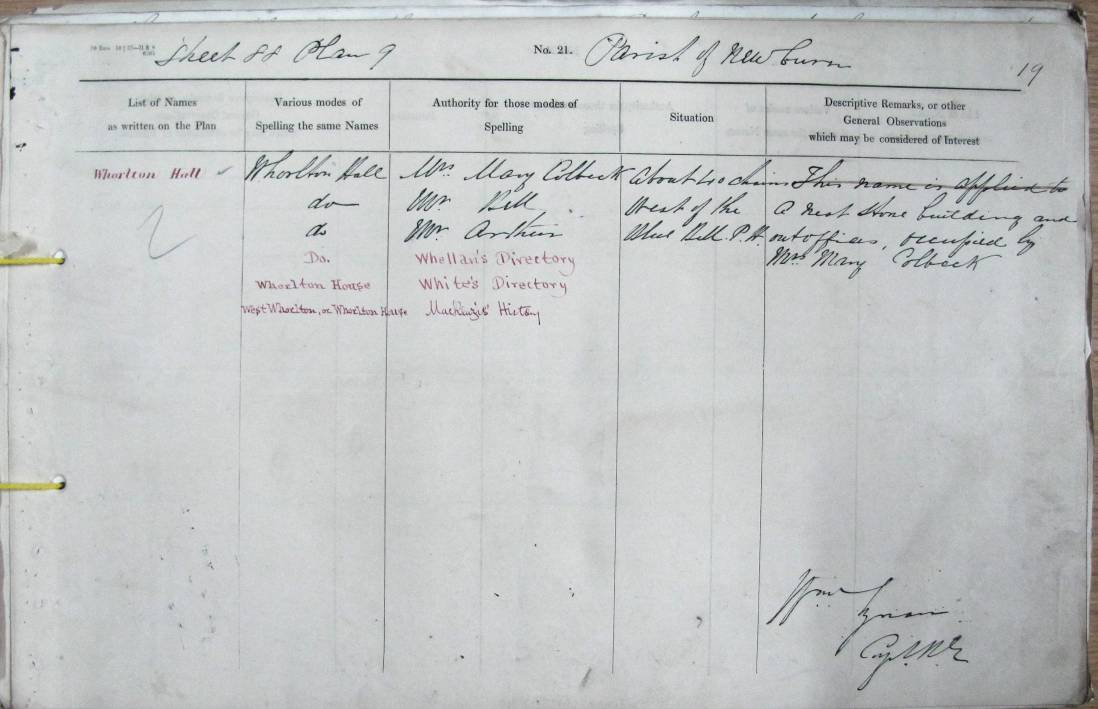 Sheet 88 Plan 9 No. 21. Parish of Newburn 19
List of Names
as written on the Plan
Various modes of
Spelling the same Names
Authority for those modes of
Spelling
Situation
Descriptive Remarks, or other
General Observations
which may be considered of Interest
Whorlton Hall
2
Whorlton Hall
do
do
Do.
Whorlton House
West Whorlton, or Whorlton House
Mrs. Mary Colbeck
Mr. Bell
Mr.
Whellan's Directory
White's Directory
Mackenzie's History
About 40 chains
West of the
Blue Bell. P.H.
This name is applied to
A neat stone building and
outoffices, occupied by
Mrs Mary Colbeck
Wm
Capt. R.E